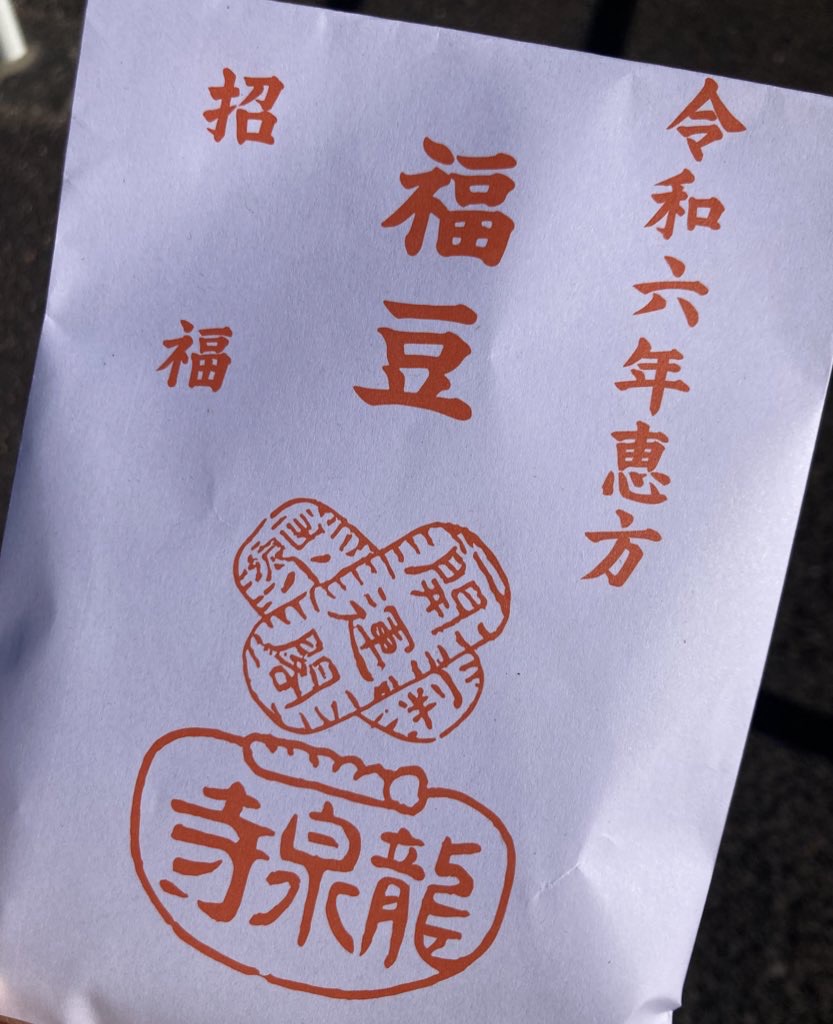 令和六年恵方
福豆
招福
開運閣
龍泉寺